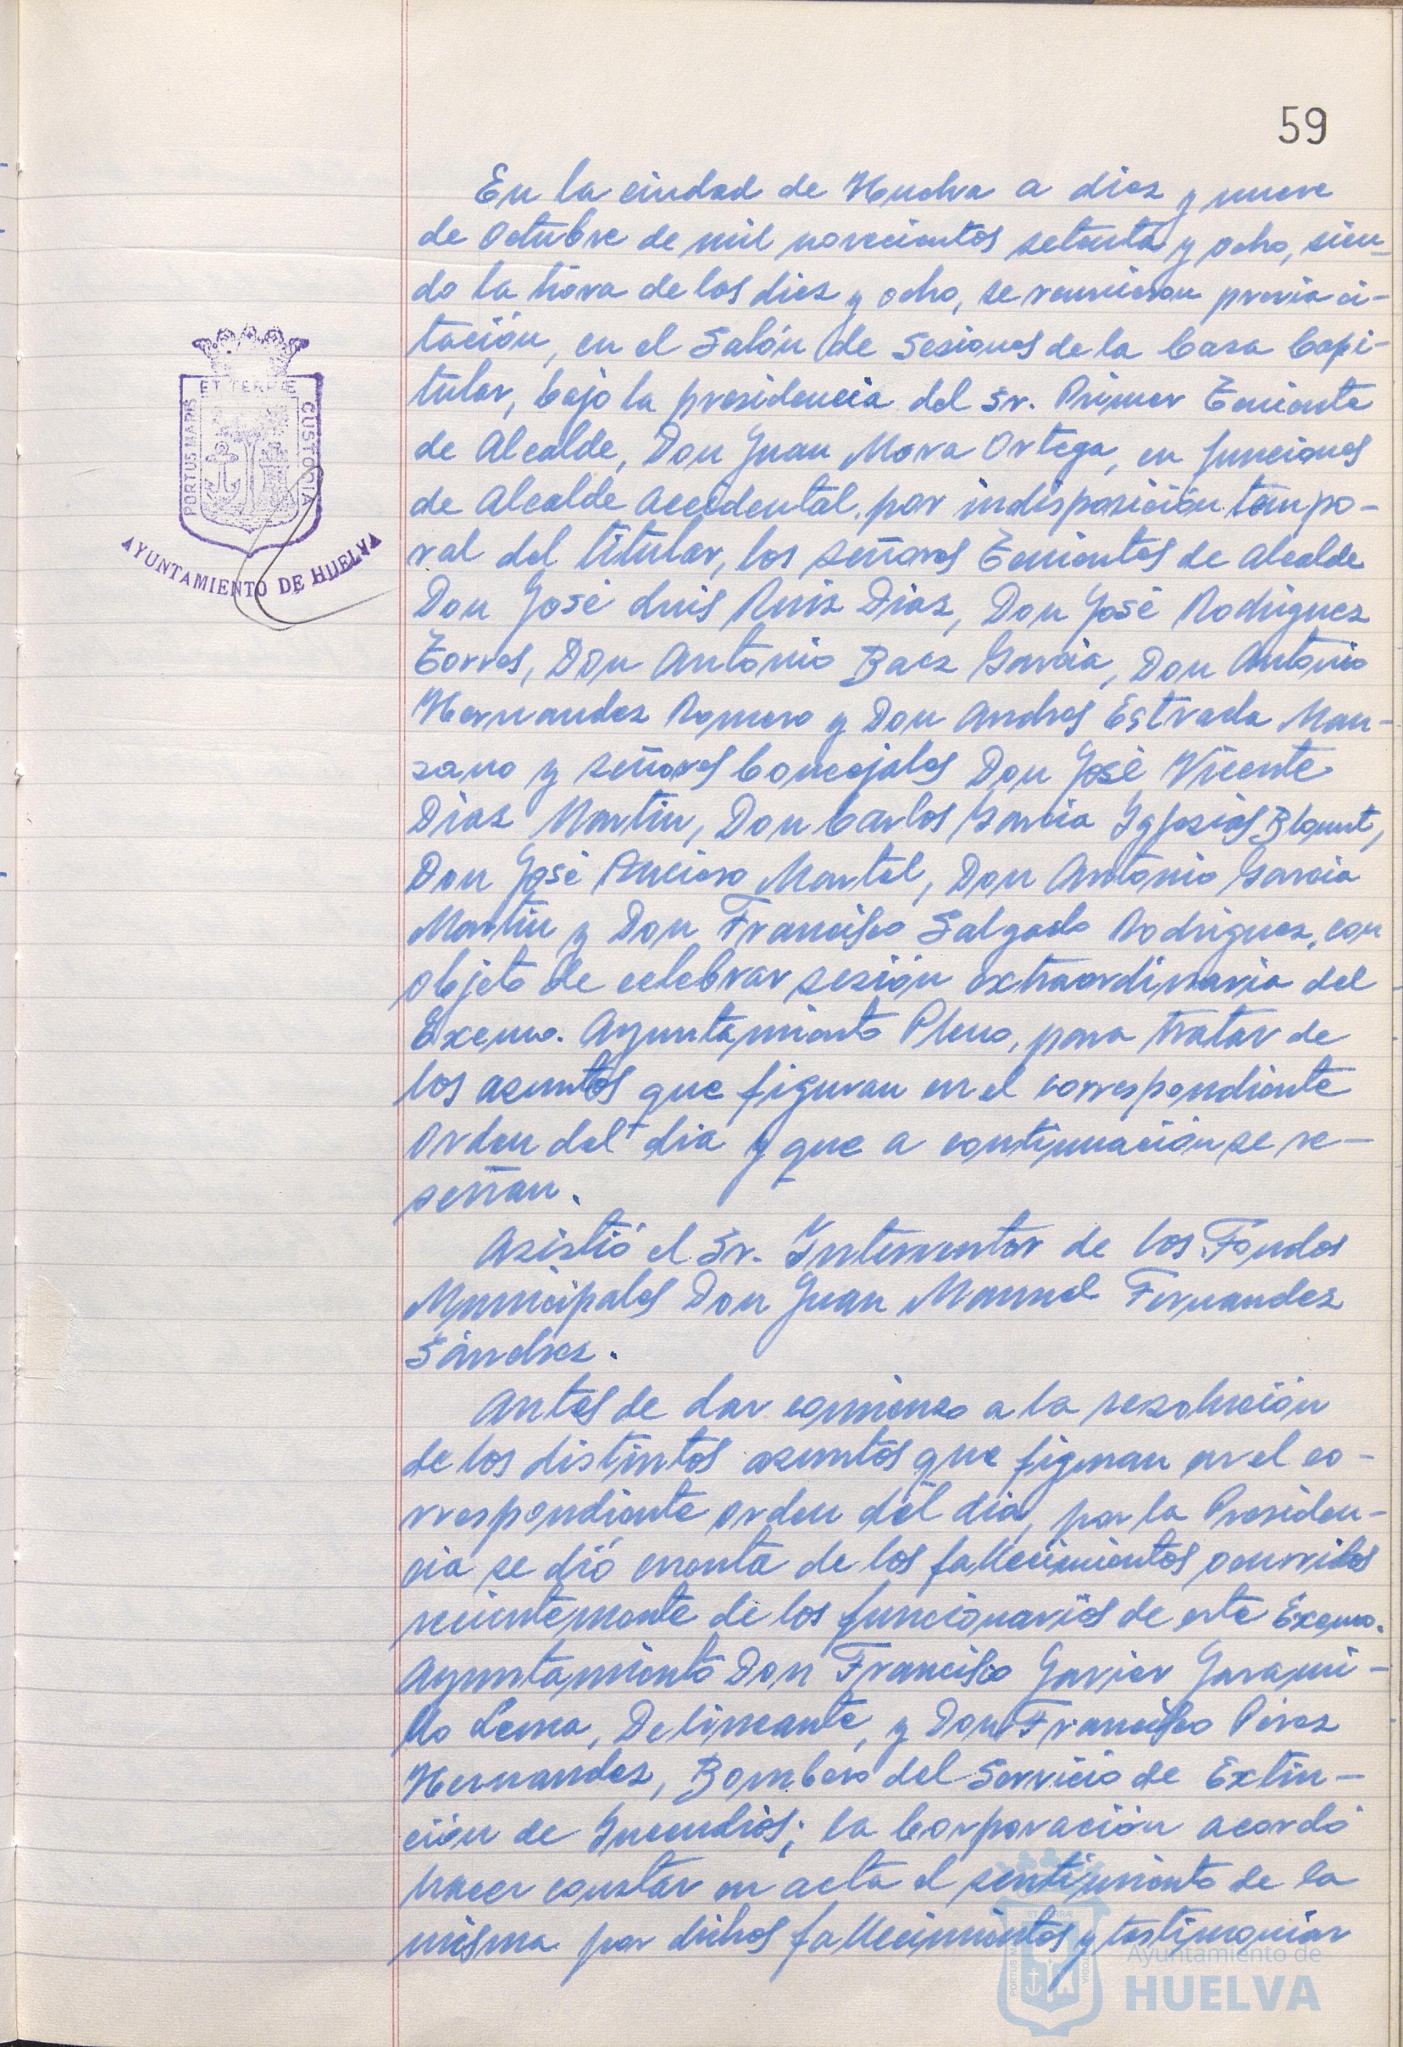 59
En la ciudad de Huelva a diez y nueve
de Octubre de mil novecientos setenta y ocho, sien-
do la hora de las diez y ocho, se reunieron previa ci-
tación, en el Salón de Sesiones de la Casa Capi-
tular, bajo la presidencia del Sr. Primer Teniente
de Alcalde, Don Juan Mora Ortega, en funciones
de Alcalde Accidental, por indisposición tempo-
ral del titular, los señores Tenientes de Alcalde
Don José Luis Ruiz Diaz, Don José Rodriguez
Torres, Don Antonio Baez Garcia, Don Antonio
Hernandez Romero y Don Andres Estrada Man-
zano y señores Concejales Don José Vicente
Diaz Martin, Don Carlos Garcia Iglesias Blqunt,
Don José Martel, Don Antonio Garcia
Martin y Don Francisco Salgado Rodriguez, con
objeto de celebrar sesión extraordinaria del
Excmo. Ayuntamiento Pleno, para tratar de
los asuntos que figuran en el correspondiente
orden del dia y que a continuación se re-
señan.
Asistió el Sr. Interventor de los Fondos
Municipales Don Juan Manuel Fernandez
Sánchez.
Antes de dar comienzo a la resolución
de los distintos asuntos que figuran en el co-
rrespondiente orden del dia, por la Presiden-
cia se dió cuenta de los fallecimientos ocurridos
recientemente de los funcionarios de este Excmo.
Ayuntamiento Don Francisco Javier Jarami-
llo Lema, Delineante, y Don Francisco Pérez
Hernandez, Bombero del Servicio de Extin-
ción de Incendios; la Corporación acordó
hacer constar en acta el sentimiento de la
misma por dichos fallecimientos y testimoniar
PORTUS MARIS ET TERRÆ CUSTODIA
AYUNTAMIENTO DE HUELVA
Ayuntamiento de
HUELVA